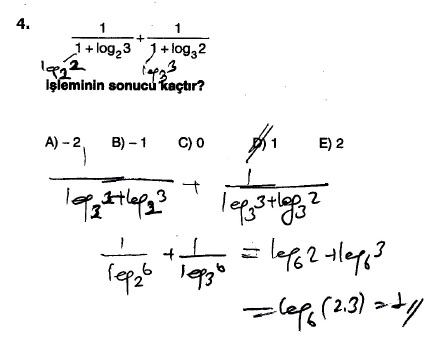 4.
1/(1 + log₂3) + 1/(1 + log₃2)
log₂2 log₃3
işleminin sonucu kaçtır?
A) – 2 B) – 1 C) 0 D) 1 E) 2
1/(log₂2+log₂3) + 1/(log₃3+log₃2)
1/log₂6 + 1/log₃6 = log₆2 + log₆3
= log₆(2.3) = 1